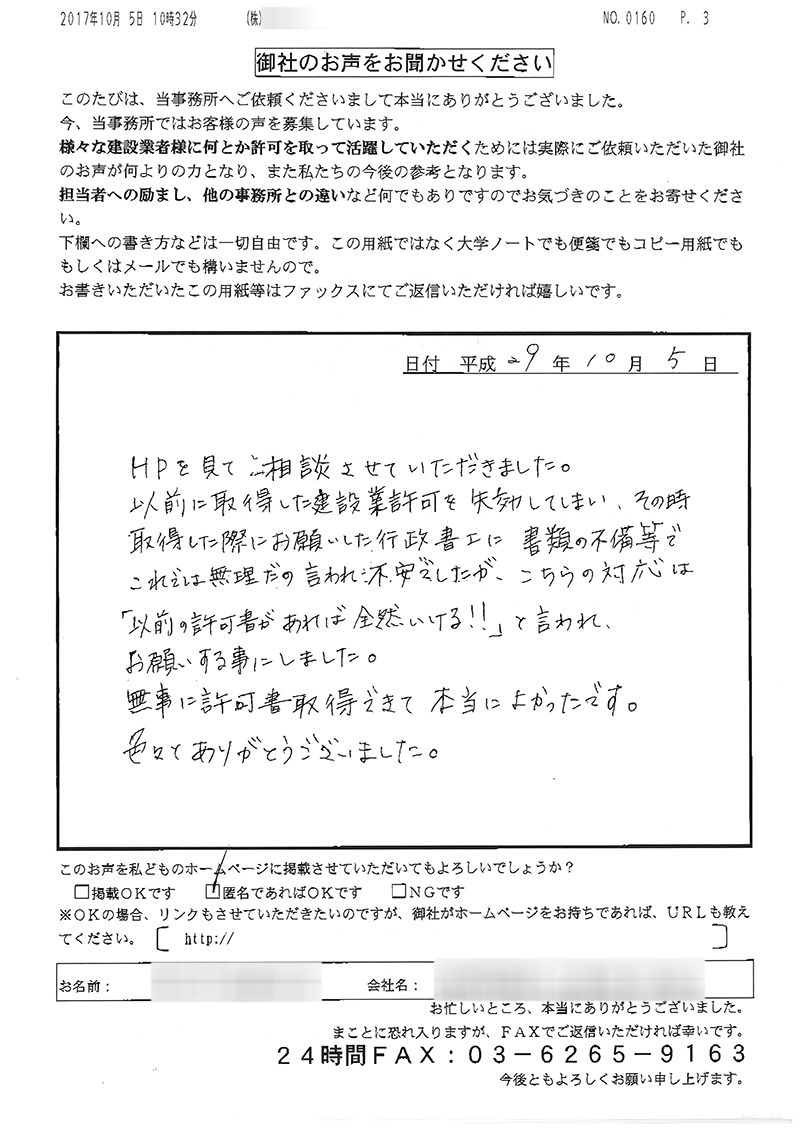 2017年10月 5日 10時32分 (株) NO.0160 P. 3
御社のお声をお聞かせください
このたびは、当事務所へご依頼くださいまして本当にありがとうございました。
今、当事務所ではお客様の声を募集しています。
様々な建設業者様に何とか許可を取って活躍していただくためには実際にご依頼いただいた御社
のお声が何よりの力となり、また私たちの今後の参考となります。
担当者への励まし、他の事務所との違いなど何でもありですのでお気づきのことをお寄せくださ
い。
下欄への書き方などは一切自由です。この用紙ではなく大学ノートでも便箋でもコピー用紙でも
もしくはメールでも構いませんので。
お書きいただいたこの用紙等はファックスにてご返信いただければ嬉しいです。
日付 平成 29 年 10 月 5 日
HPを見てご相談させていただきました。
以前に取得した建設業許可を失効してしまい、その時
取得した際にお願いした行政書士に書類の不備等で
これでは無理だの言われ不安でしたが、こちらの対応は
「以前の許可書があれば全然いける!!」と言われ、
お願いする事にしました。
無事に許可書取得できて本当によかったです。
色々とありがとうございました。
このお声を私どものホームページに掲載させていただいてもよろしいでしょうか?
□掲載OKです □匿名であればOKです □NGです
※OKの場合、リンクもさせていただきたいのですが、御社がホームページをお持ちであれば、URLも教え
てください。[ http:// ]
お名前: 会社名:
お忙しいところ、本当にありがとうございました。
まことに恐れ入りますが、FAXでご返信いただければ幸いです。
24時間FAX:03-6265-9163
今後ともよろしくお願い申し上げます。